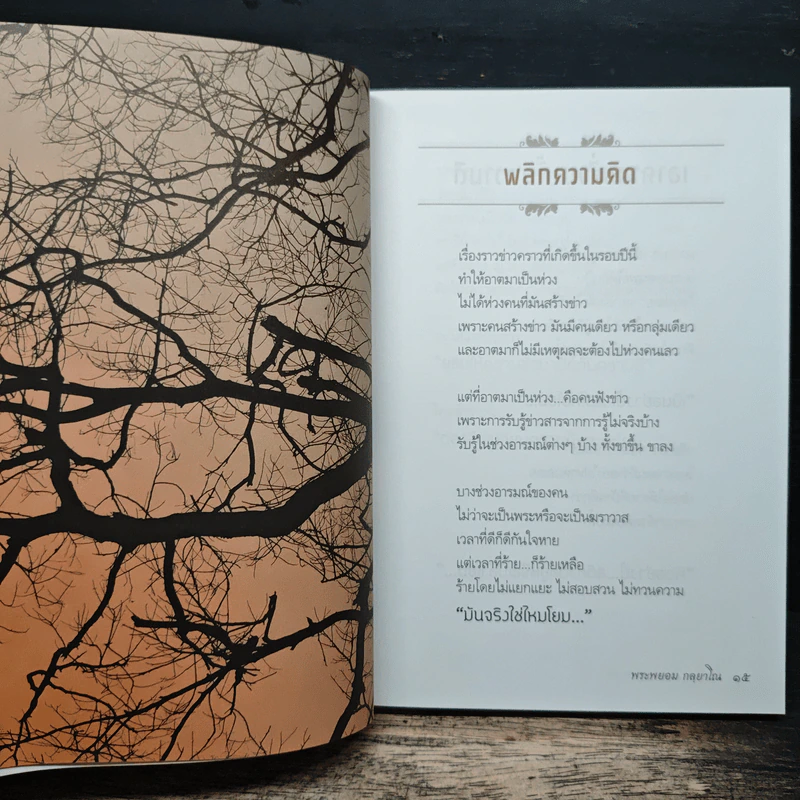 พลิกความคิด
เรื่องราวข่าวคราวที่เกิดขึ้นในรอบปีนี้
ทำให้อาตมาเป็นห่วง
ไม่ได้ห่วงคนที่มันสร้างข่าว
เพราะคนสร้างข่าว มันมีคนเดียว หรือกลุ่มเดียว
และอาตมาก็ไม่มีเหตุผลจะต้องไปห่วงคนเลว
แต่ที่อาตมาเป็นห่วง...คือคนฟังข่าว
เพราะการรับรู้ข่าวสารจากการรู้ไม่จริงบ้าง
รับรู้ในช่วงอารมณ์ต่างๆ บ้าง ทั้งขาขึ้น ขาลง
บางช่วงอารมณ์ของคน
ไม่ว่าจะเป็นพระหรือจะเป็นฆราวาส
เวลาที่ดีก็ดีกันใจหาย
แต่เวลาที่ร้าย...ก็ร้ายเหลือ
ร้ายโดยไม่แยกแยะ ไม่สอบสวน ไม่ทวนความ
“มันจริงใช่ไหมโยม...”
พระพยอม กลฺยาโณ ๑๕